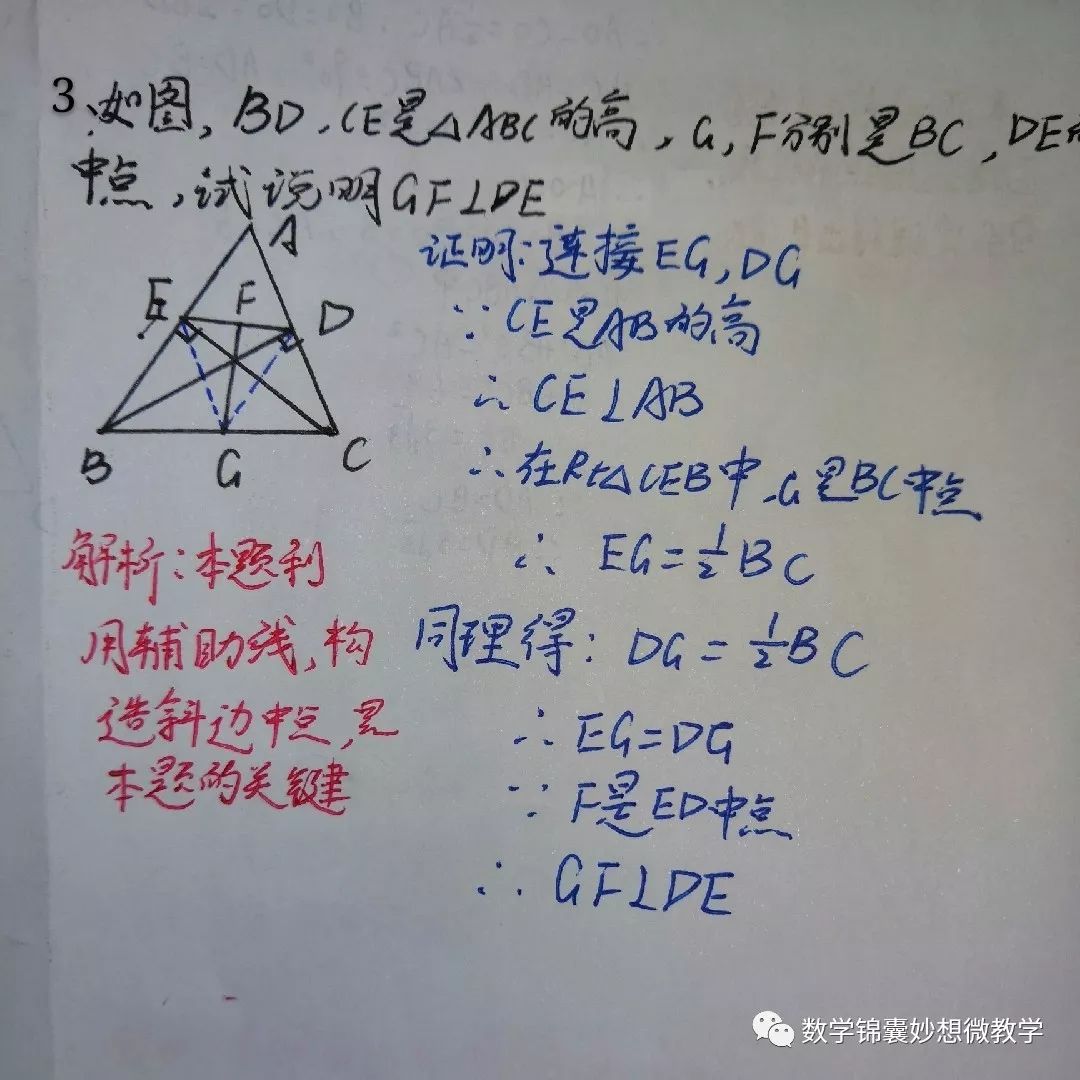 3、如图，BD，CE是△ABC的高，G，F分别是BC，DE的
中点，试说明GF⊥DE
A
E
F
D
B
G
C
证明：连接EG，DG
∵CE是AB的高
∴CE⊥AB
∴在Rt△CEB中，G是BC中点
∴EG=1/2BC
同理得：DG=1/2BC
∴EG=DG
∵F是ED中点
∴GF⊥DE
解析：本题利
用辅助线，构
造斜边中点，是
本题的关键
数学锦囊妙想微教学